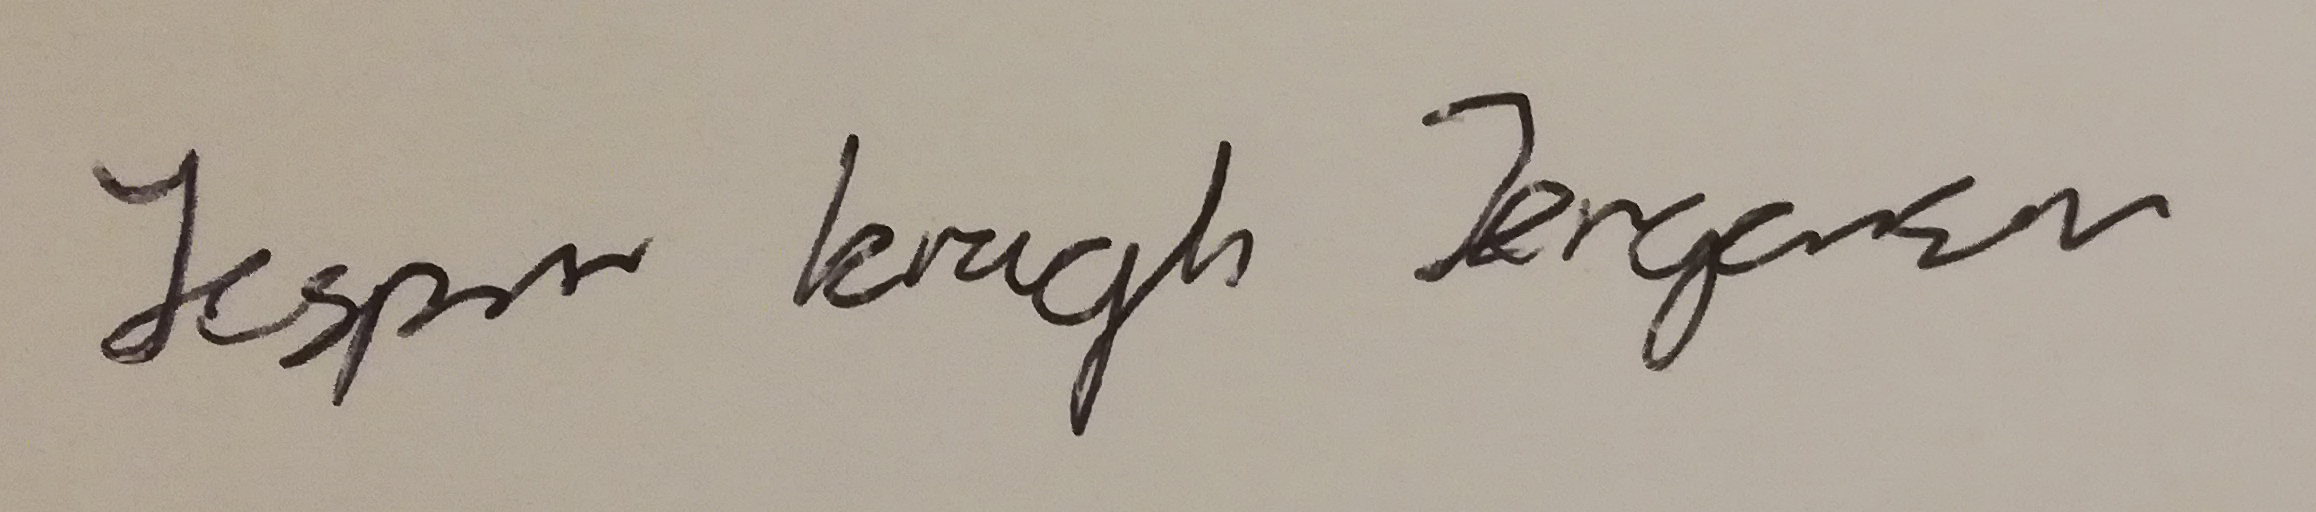 Jesper Kragh Jørgensen